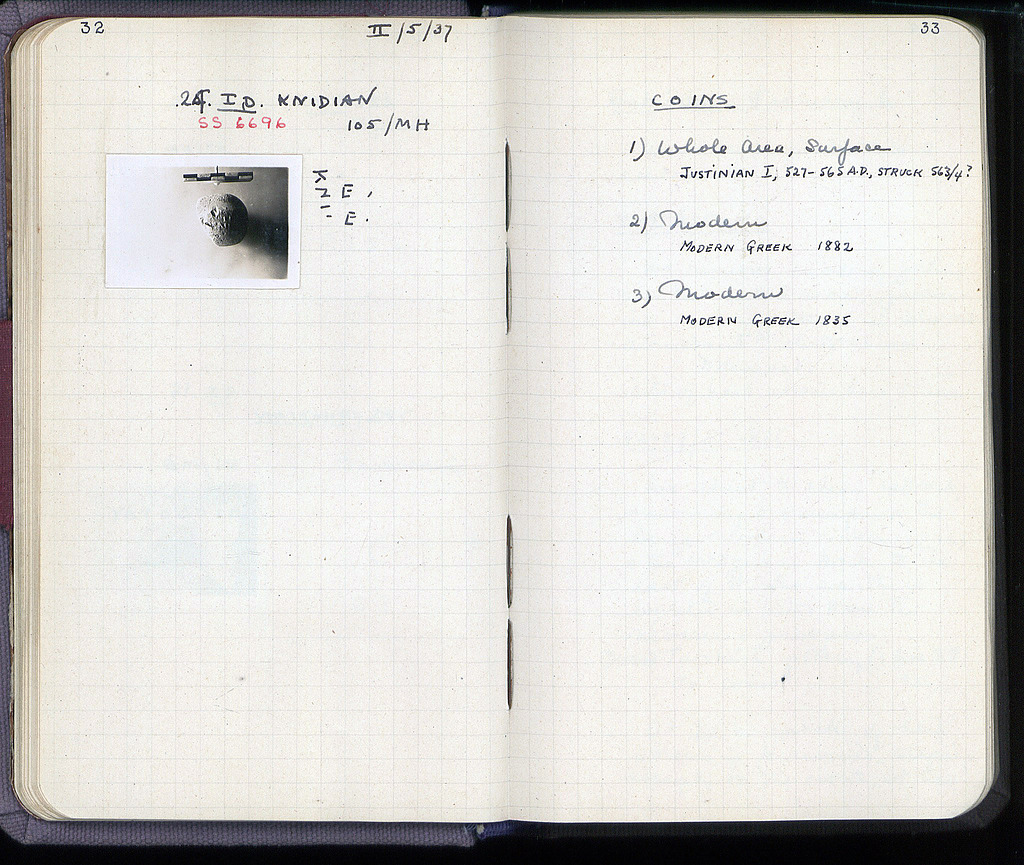 32
II/5/37
I D. KNIDIAN
SS 6696 105/MH
E.
E.
33
COINS
1) Whole Area, Surface
JUSTINIAN I, 527-565 A.D., STRUCK 563/4?
2) Modern
MODERN GREEK 1882
3) Modern
MODERN GREEK 1835